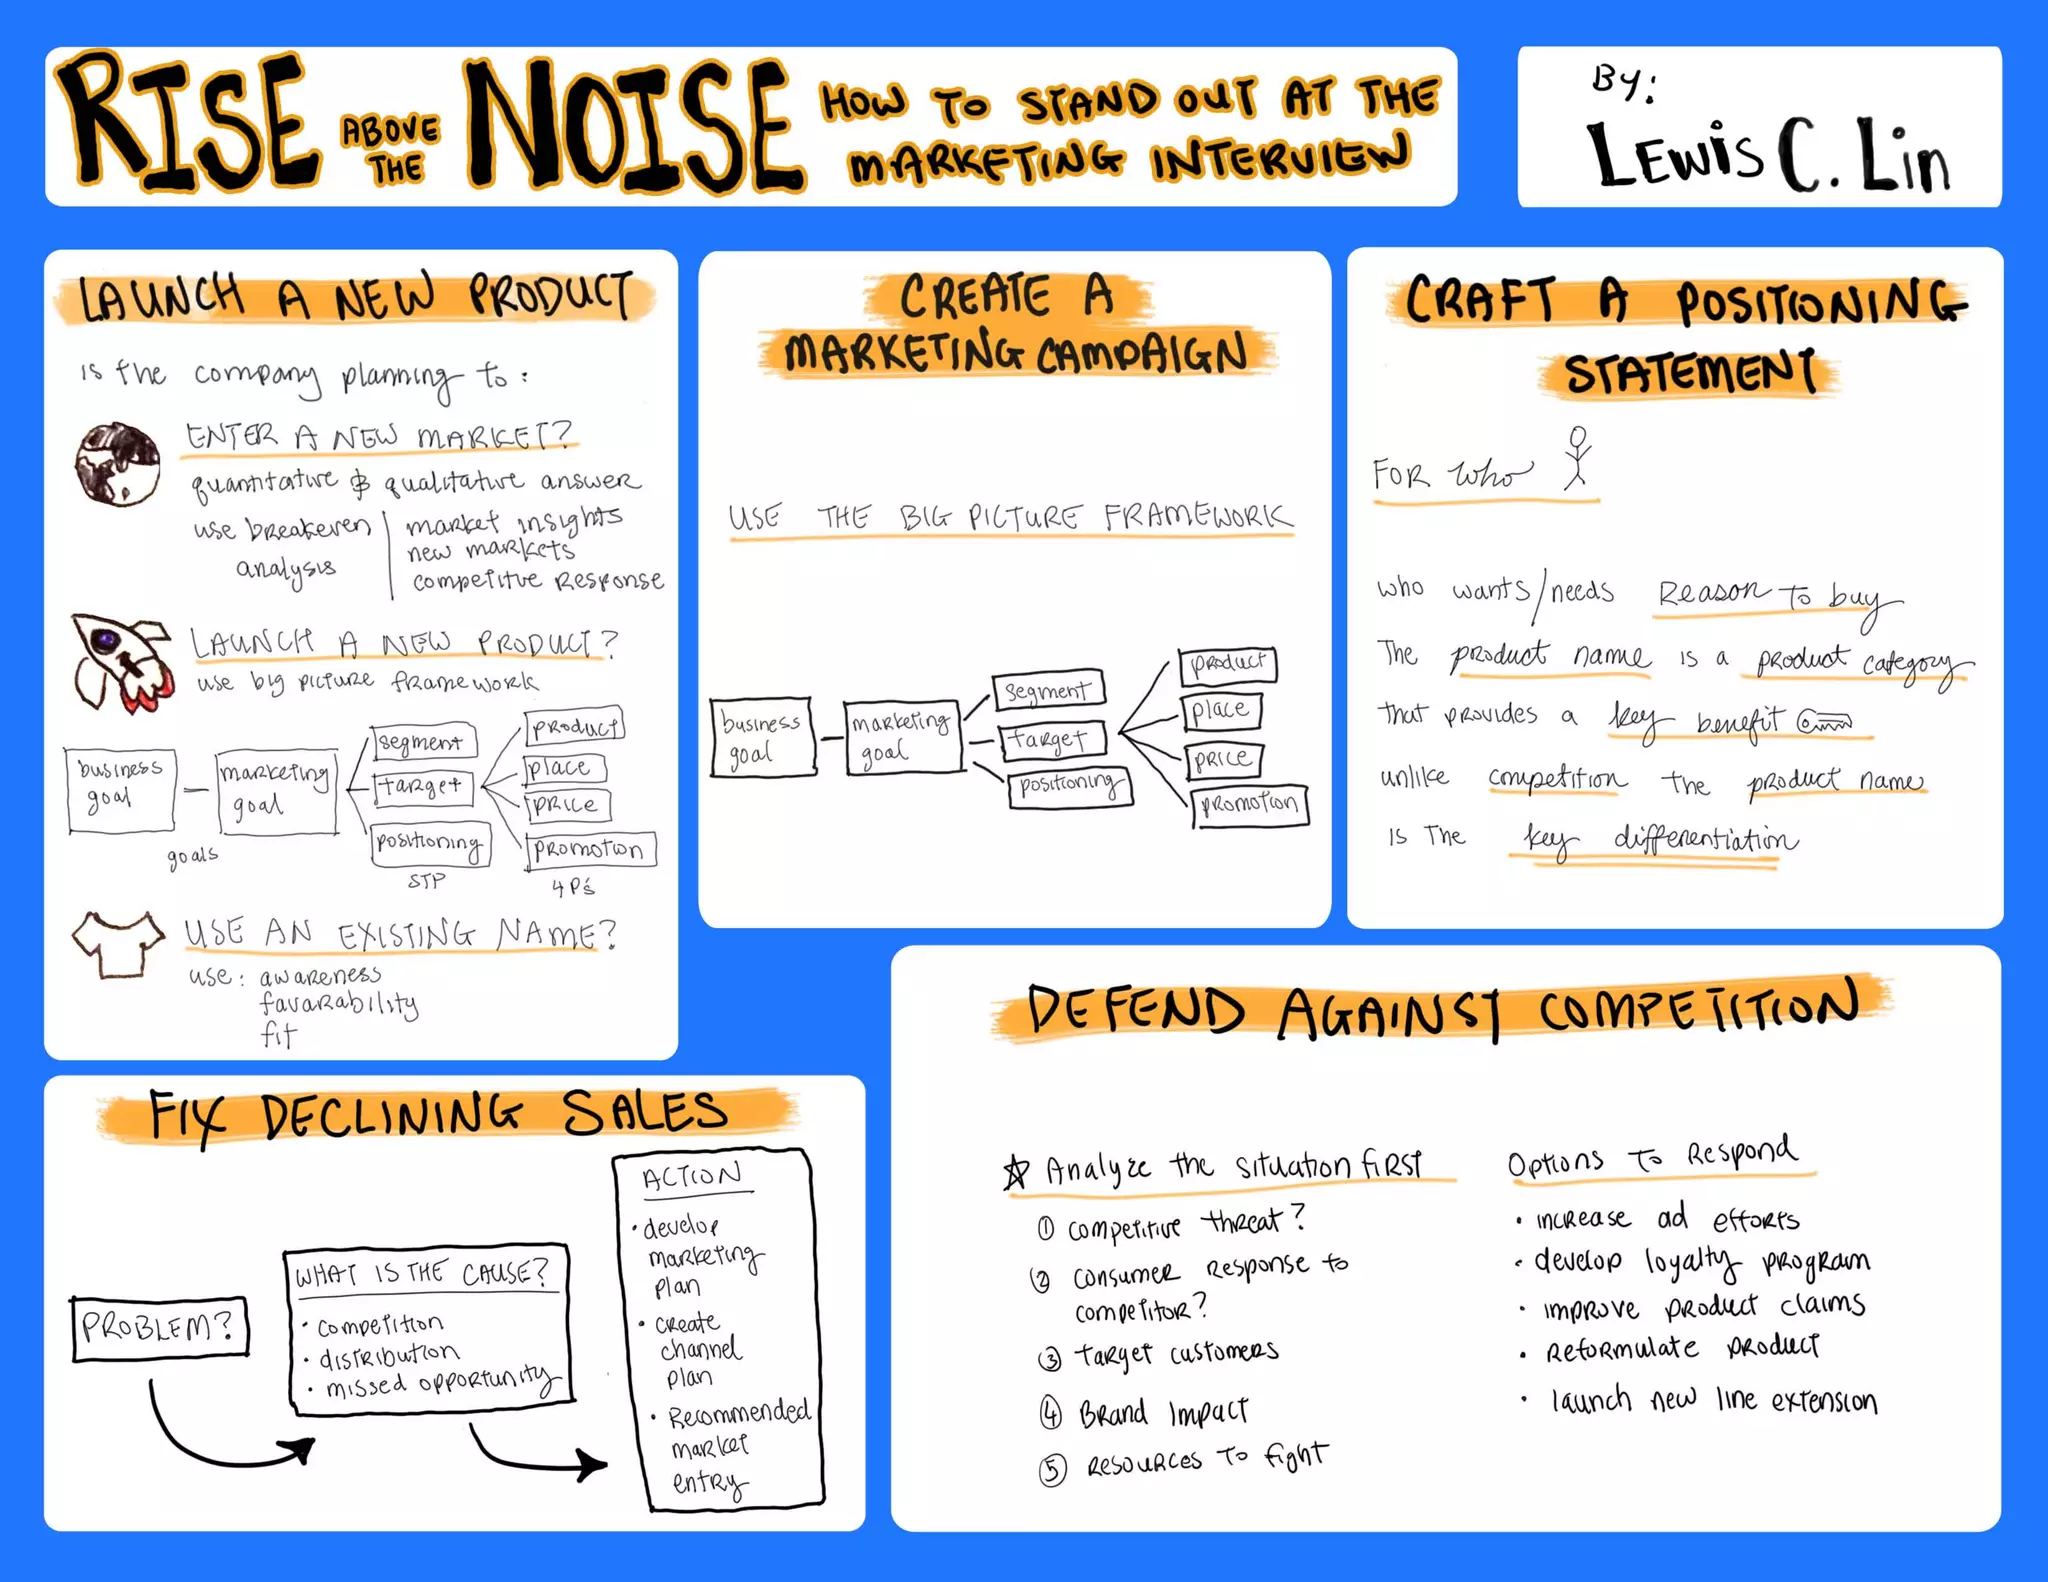 RISE ABOVE THE NOISE HOW TO STAND OUT AT THE MARKETING INTERVIEW
BY:
LEWIS C. LIN
LAUNCH A NEW PRODUCT
is the company planning to:
ENTER A NEW MARKET?
quantitative & qualitative answer
use breakeven analysis
market insights
new markets
competitive response
LAUNCH A NEW PRODUCT?
use big picture framework
business goal
marketing goal
goals
segment
target
positioning
STP
product
place
price
promotion
4 P's
USE AN EXISTING NAME?
use: awareness
favarability
fit
CREATE A
MARKETING CAMPAIGN
USE THE BIG PICTURE FRAMEWORK
business goal
marketing goal
segment
target
positioning
product
place
price
promotion
CRAFT A POSITIONING
STATEMENT
FOR who
who wants/needs reason to buy
The product name is a product category
that provides a key benefit
unlike competition the product name
is the key differentiation
FIX DECLINING SALES
PROBLEM?
WHAT IS THE CAUSE?
• competition
• distribution
• missed opportunity
ACTION
• develop
marketing
plan
• create
channel
plan
• Recommended
market
entry
DEFEND AGAINST COMPETITION
Analyze the situation first
① competitive threat?
② consumer response to
competitor?
③ target customers
④ Brand Impact
⑤ resources to fight
Options to Respond
• increase ad efforts
• develop loyalty program
• improve product claims
• reformulate product
• launch new line extension